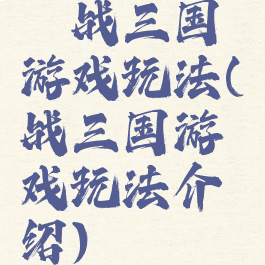 战三国
游戏玩法(
战三国游
戏玩法介
绍)